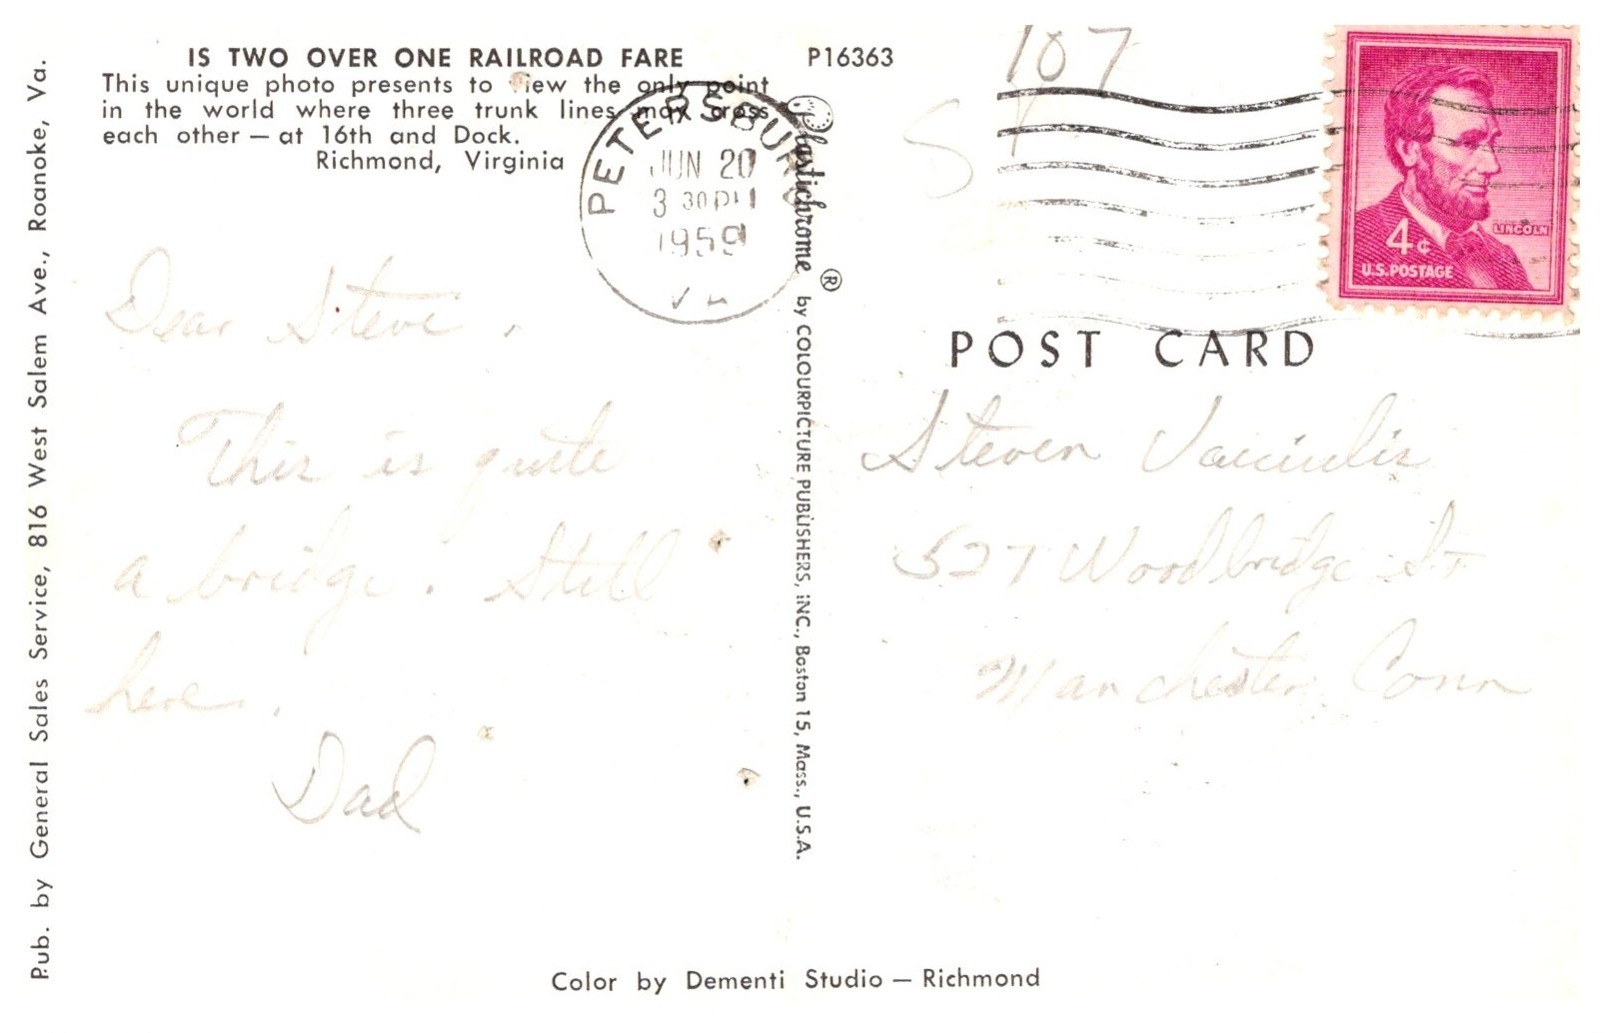 IS TWO OVER ONE RAILROAD FARE
This unique photo presents to view the only point
in the world where three trunk lines may cross
each other — at 16th and Dock.
Richmond, Virginia
P16363
107
PETERSBURG
JUN 20
3 30 PM
1959
VA
4¢
LINCOLN
U.S. POSTAGE
POST CARD
Dear Steve,
This is quite
a bridge. Still
here.
Dad
Steven
527 Woodbridge St
Manchester Conn
Plastichrome ® by COLOURPICTURE PUBLISHERS, INC., Boston 15, Mass., U.S.A.
Pub. by General Sales Service, 816 West Salem Ave., Roanoke, Va.
Color by Dementi Studio — Richmond